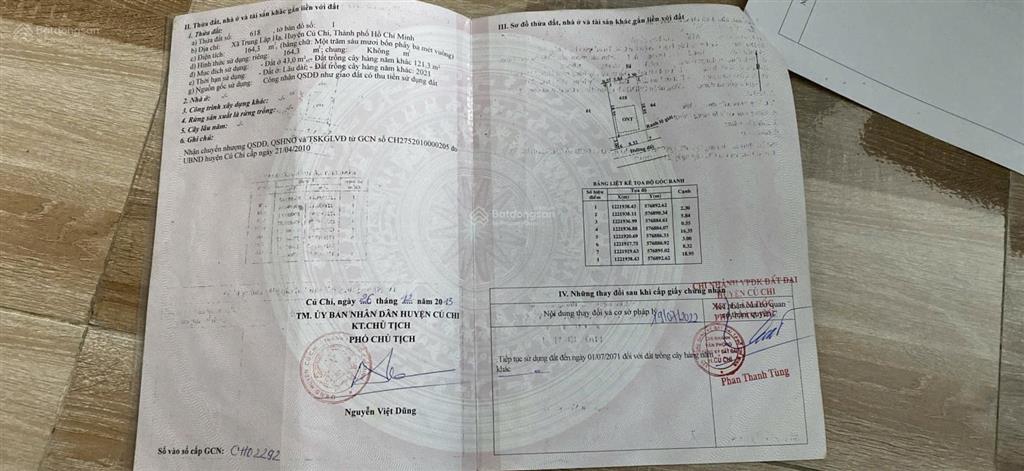 II. Thửa đất, nhà ở và tài sản khác gắn liền với đất
1. Thửa đất:
a) Thửa đất số: 618 , tờ bản đồ số: 1
b) Địa chỉ: Xã Trung Lập Hạ, Huyện Củ Chi, Thành phố Hồ Chí Minh
c) Diện tích: 164,3 m², (bằng chữ: Một trăm sáu mươi bốn phẩy ba mét vuông)
d) Hình thức sử dụng: riêng: 164,3 m²; chung: Không m²
đ) Mục đích sử dụng: - Đất ở 43,0 m²,- Đất trồng cây hàng năm khác 121,3 m²
e) Thời hạn sử dụng: - Đất ở: Lâu dài; - Đất trồng cây hàng năm khác: 2021
g) Nguồn gốc sử dụng: Công nhận QSDĐ như giao đất có thu tiền sử dụng đất
2. Nhà ở:
3. Công trình xây dựng khác:
4. Rừng sản xuất là rừng trồng:
5. Cây lâu năm:
6. Ghi chú:
Nhận chuyển nhượng QSDĐ, QSHNỞ và TSKGLVĐ từ GCN số CH2752010000205 do
UBND huyện Củ Chi cấp ngày 21/04/2010
Củ Chi, ngày 26 tháng 12 năm 2013
TM. ỦY BAN NHÂN DÂN HUYỆN CỦ CHI
KT.CHỦ TỊCH
PHÓ CHỦ TỊCH
Nguyễn Việt Dũng
Số vào sổ cấp GCN: CH02292
III. Sơ đồ thửa đất, nhà ở và tài sản khác gắn liền với đất
618
ONT
Ranh lộ giới
Đường đất
BẢNG LIỆT KÊ TỌA ĐỘ GÓC RANH
Số hiệu điểm Tọa độ Cạnh
X(m) Y(m)
1 1221938.43 576892.62
2.30
2 1221938.11 576890.34
5.84
3 1221936.99 576884.61
0.55
4 1221936.88 576884.07
16.35
5 1221920.69 576886.33
3.00
6 1221917.75 576886.92
8.32
7 1221919.63 576895.02
18.95
1 1221938.43 576892.62
IV. Những thay đổi sau khi cấp giấy chứng nhận
Nội dung thay đổi và cơ sở pháp lý
Xác nhận của cơ quan
có thẩm quyền
CHI NHÁNH VPĐK ĐẤT ĐAI
HUYỆN CỦ CHI
19/07/2022
Tiếp tục sử dụng đất đến ngày 01/07/2071 đối với đất trồng cây hàng năm
khác
CHI NHÁNH
VĂN PHÒNG
ĐĂNG KÝ ĐẤT ĐAI
H. CỦ CHI
Phan Thanh Tùng
Batdongsan
Batdongsan
Batdongsan